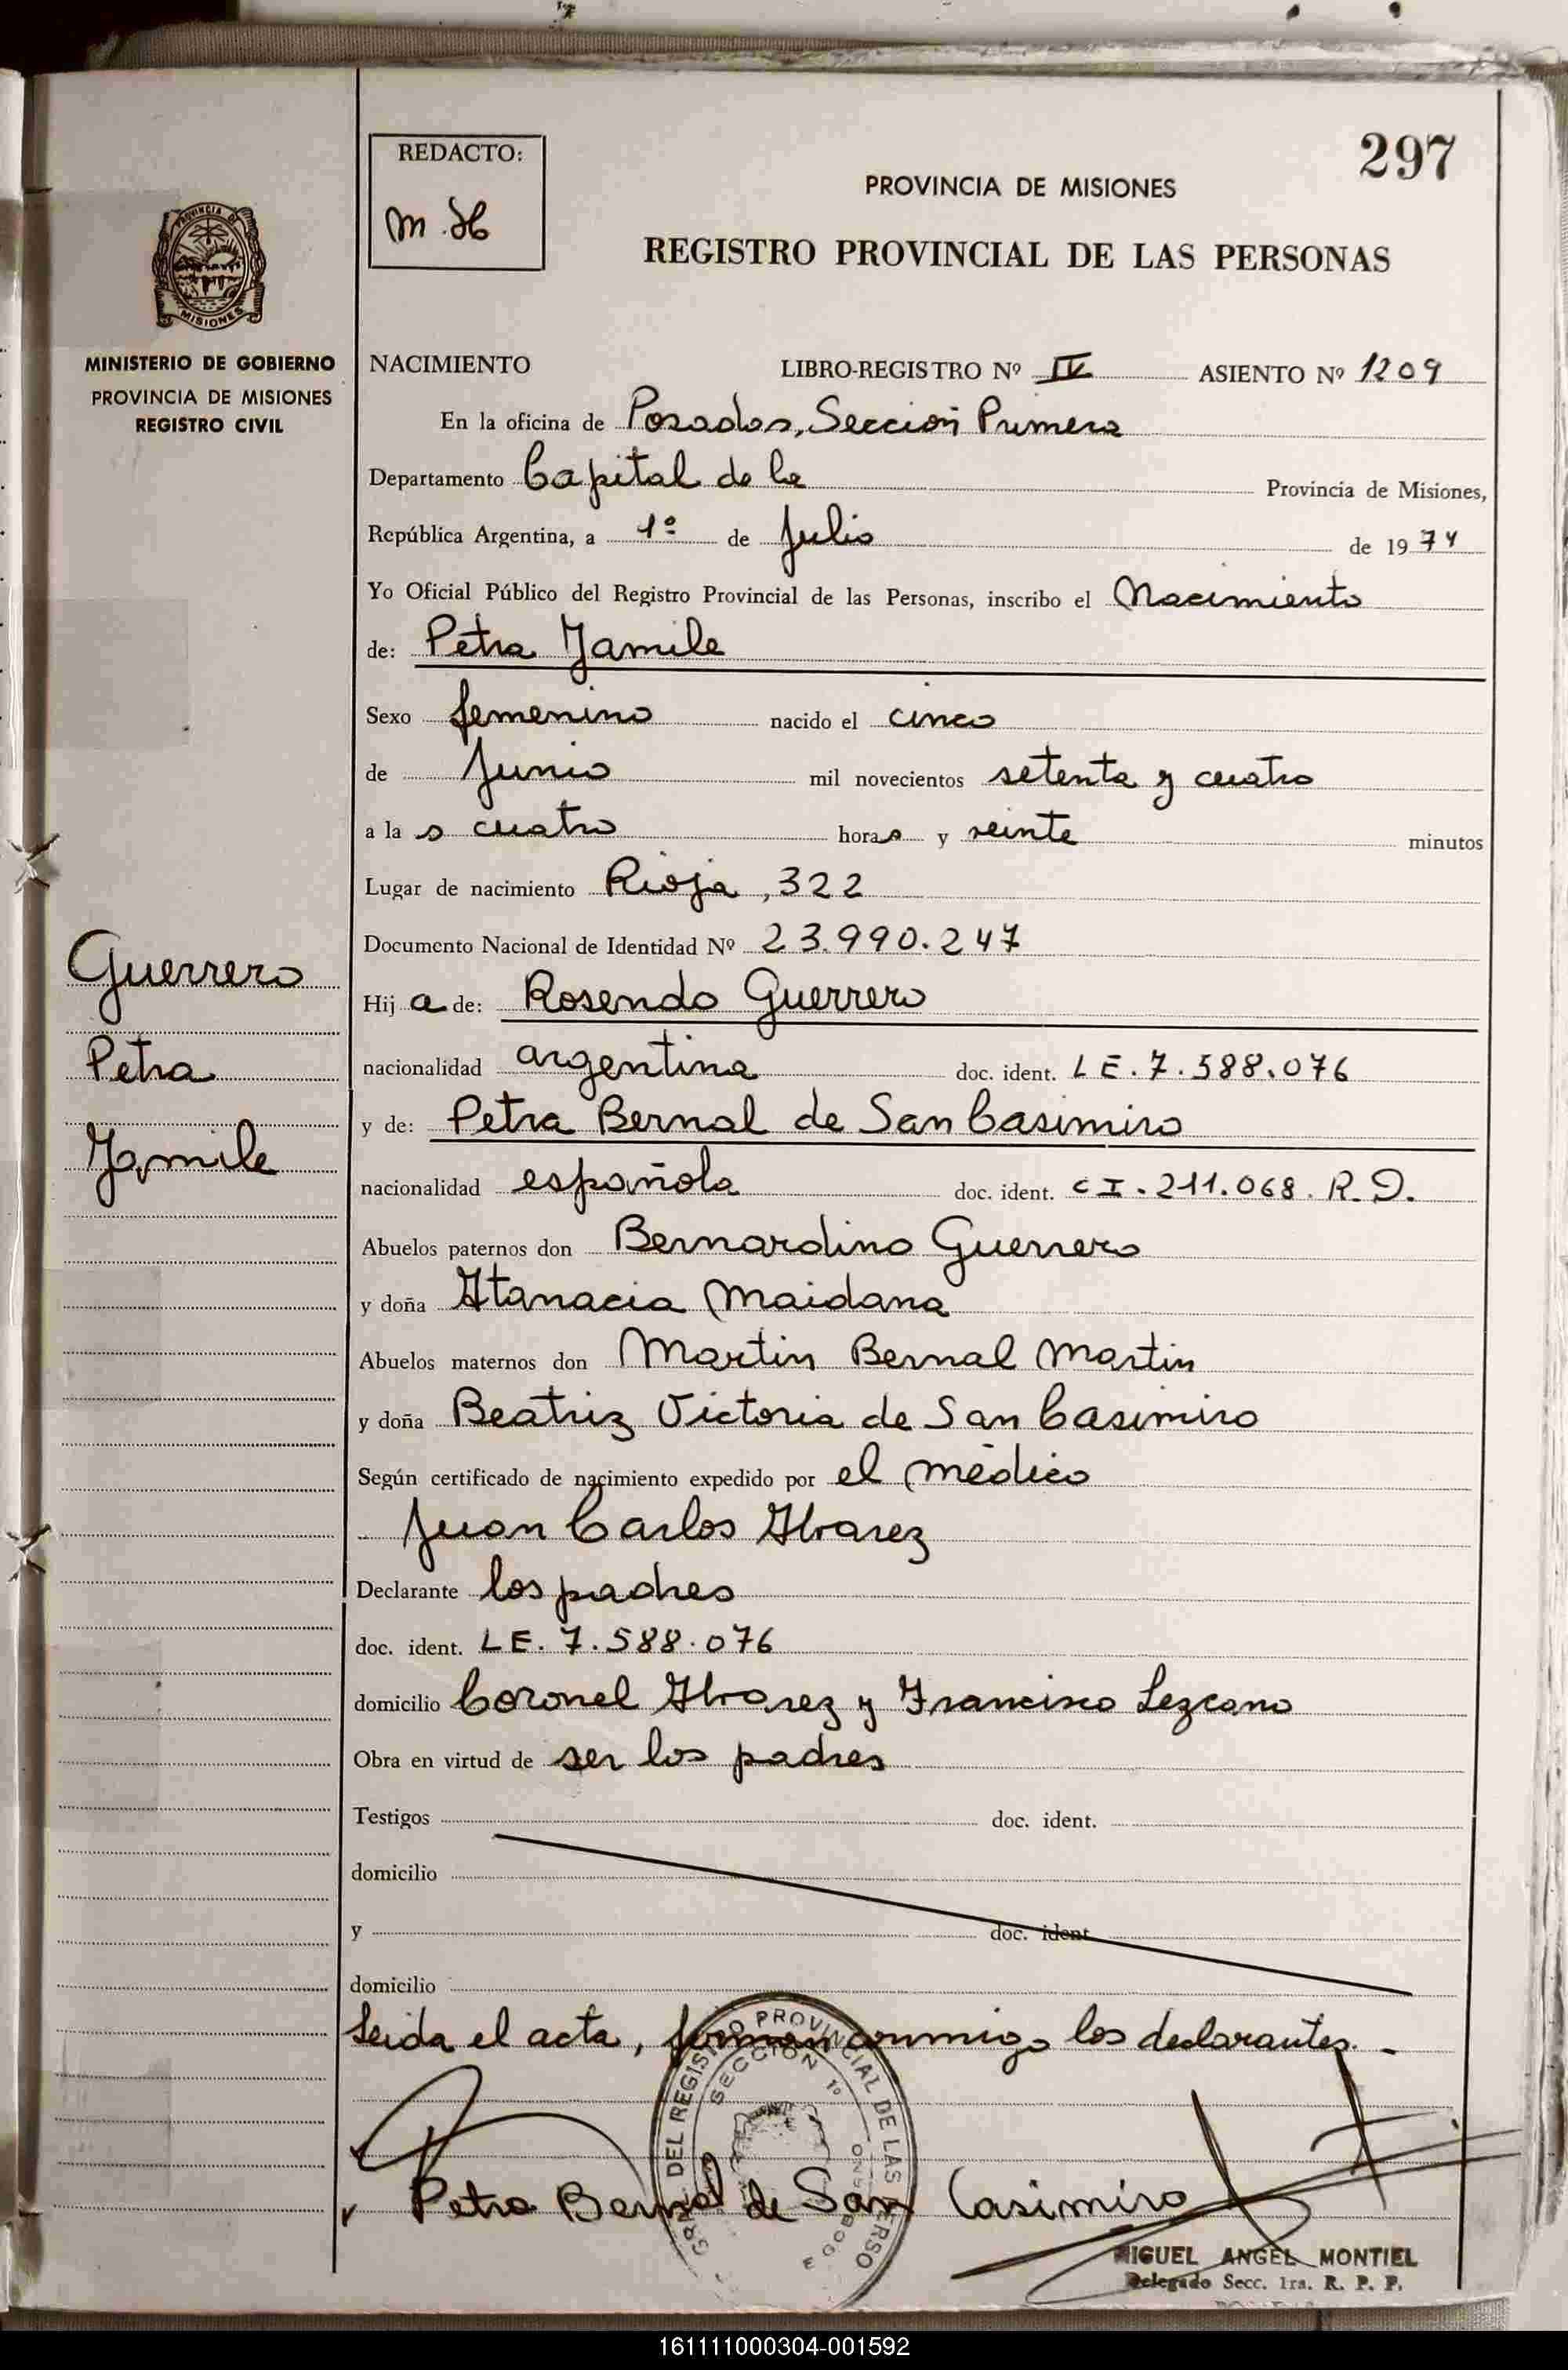 297
REDACTO:
m.H
PROVINCIA DE MISIONES
REGISTRO PROVINCIAL DE LAS PERSONAS
PROVINCIA DE
MISIONES
MINISTERIO DE GOBIERNO
PROVINCIA DE MISIONES
REGISTRO CIVIL
NACIMIENTO LIBRO-REGISTRO Nº IV ASIENTO Nº 1209
En la oficina de Posadas, Sección Primera
Departamento Capital de la Provincia de Misiones,
República Argentina, a 1º de Julio de 1974
Yo Oficial Público del Registro Provincial de las Personas, inscribo el Nacimiento
de: Petra Yamile
Sexo femenino nacido el cinco
de Junio mil novecientos setenta y cuatro
a la s cuatro horas y veinte minutos
Lugar de nacimiento Rioja, 322
Documento Nacional de Identidad Nº 23.990.247
Guerrero
Petra
Yamile
Hij a de: Rosendo Guerrero
nacionalidad argentina doc. ident. LE. 7.588.076
y de: Petra Bernal de San Casimiro
nacionalidad española doc. ident. CI. 211.068. R.D.
Abuelos paternos don Bernardino Guerrero
y doña Atanacia Maidana
Abuelos maternos don Martin Bernal Martin
y doña Beatriz Victoria de San Casimiro
Según certificado de nacimiento expedido por el médico
Juan Carlos Alvarez
Declarante los padres
doc. ident. LE. 7.588.076
domicilio Coronel Alvarez y Francisco Lezcano
Obra en virtud de ser los padres
Testigos doc. ident.
domicilio
y doc. ident.
domicilio
Leida el acta, firman conmigo los declarantes. -
DEL REGISTRO PROVINCIAL DE LAS
SECCION 1º
Petra Bernal de San Casimiro
MIGUEL ANGEL MONTIEL
Delegado Secc. 1ra. R. P. P.
161111000304-001592